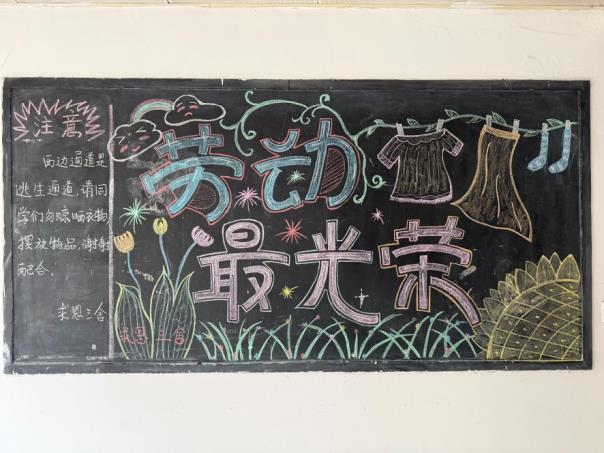 注意
两边通道是
逃生通道,请同
学们勿晾晒衣物,
摆放物品,谢谢
配合。
求恩三舍
劳动
最光荣
求恩三舍